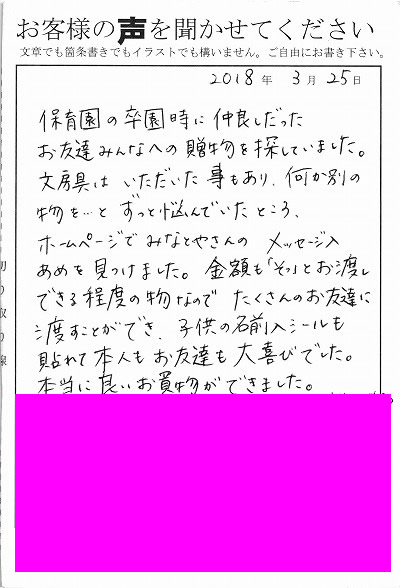 お客様の声を聞かせてください
文章でも箇条書きでもイラストでも構いません。ご自由にお書き下さい。
2018年 3月 25日
保育園の卒園時に仲良しだった
お友達みんなへの贈物を探していました。
文房具は いただいた事もあり、何か別の
物を…と ずっと悩んでいたところ、
ホームページで みなとやさんの メッセージ入
あめを見つけました。金額も「そっ」とお渡し
できる程度の物なので たくさんのお友達に
渡すことができ、子供の名前入シールも
貼れて本人もお友達も大喜びでした。
本当に良いお買物ができました。
切り取り線